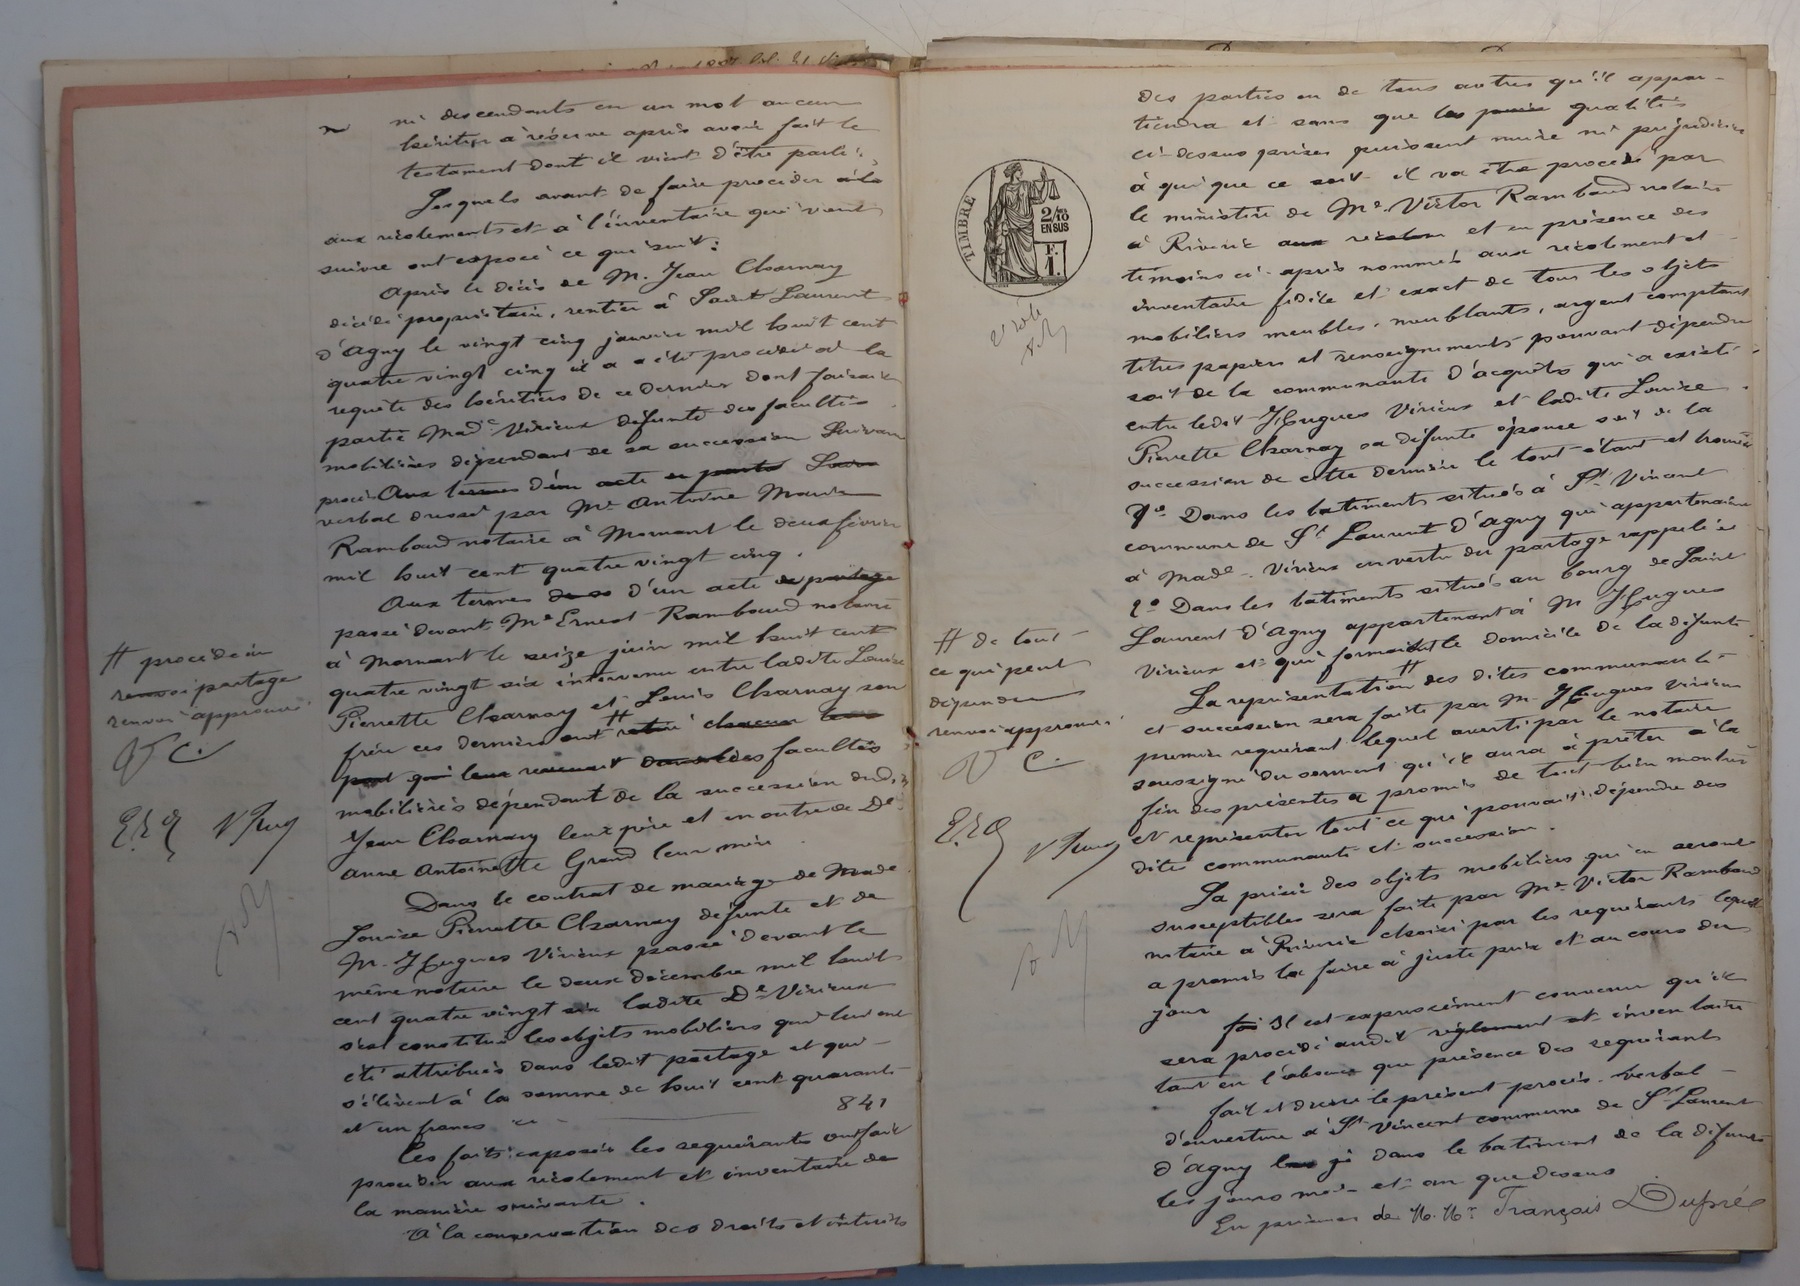 ni descendants en un mot aucun
héritier à réserve après avoir fait le
testament dont il vient d'être parlé.
Lesquels avant de faire procéder à la
aux récolements et à l'inventaire qui vient
suivre ont exposé ce que suit :
Après le décès de M. Jean Charnay
décédé propriétaire, rentier à Saint Laurent
d'Agny le vingt cinq janvier mil huit cent
quatre vingt cinq il a été procédé à la
requête des héritiers de ce dernier dont faisait
partie Made Virieux défunte des facultés
mobilières dépendant de sa succession Suivant
procès Aux termes d'un acte en
verbal dressé par Me Antoine Marie
Rambaud notaire à Mornant le deux février
mil huit cent quatre vingt cinq.
Aux termes d'un acte de partage
passé devant Me Ernest Rambaud notaire
à Mornant le seize juin mil huit cent
quatre vingt six intervenu entre ladite Louise
Pierrette Charnay et Louis Charnay son
frère ces derniers ont # retiré chacun
part qui leur revenait dans les des facultés
mobilières dépendant de la succession dud.
Jean Charnay leur père et en outre de De
Anne Antoinette Grand leur mère.
Dans le contrat de mariage de Made
Louise Pierrette Charnay défunte et de
M. Hugues Virieux passé devant le
même notaire le deux décembre mil huit
cent quatre vingt six ladite De Virieux
s'est constitué les objets mobiliers qui lui ont
été attribués dans ledit partage et qui
s'élèvent à la somme de huit cent quarante
et un francs ci 841
Ces faits exposés les requérants ont fait
procéder aux récolement et inventaire de
la manière suivante.
A la conservation des droits et intérêts
# procédé au
renvoi partage
renvoi approuvé
V C.
des parties ou de tous autres qu'il appar-
tiendra et sans que les qualités
ci-dessus prises puissent nuire ni préjudicier
à qui que ce soit il va être procédé par
le ministère de Me Victor Rambaud notaire
à Riverie aux et en présence des
témoins ci-après nommés aux récolement et
inventaire fidèle et exact de tous les objets
mobiliers meubles, meublants, argent comptant
titres papiers et renseignements pouvant dépendre
soit de la communauté d'acquêts qui a existé
entre ledit Hugues Virieux et ladite Louise
Pierrette Charnay sa défunte épouse soit de la
succession de cette dernière le tout étant et trouvé
1° Dans les bâtiments situés à St Vincent
commune de St Laurent d'Agny qui appartenaient
à Made Virieux en vertu du partage rappelé
2° Dans les bâtiments situés au bourg de Saint
Laurent d'Agny appartenant à M Hugues
Virieux et qui formaient le domicile de la défunte.
La représentation # des dites communauté
et succession sera faite par M. Hugues Virieux
premier requérant lequel averti par le notaire
soussigné du serment qu'il aura à prêter à la
fin des présentes a promis de tout bien montrer
et représenter tout ce qui pouvait dépendre des
dites communauté et succession.
La prisée des objets mobiliers qui en seront
susceptibles sera faite par Me Victor Rambaud
notaire à Riverie choisi par les requérants lequel
a promis la faire à juste prix et au cours du
jour
Il est expressément convenu qu'il
sera procédé audit règlement et inventaire
tant en l'absence que présence des requérants
fait et dressé le présent procès-verbal
d'ouverture à St Vincent commune de St Laurent
d'Agny dans le bâtiment de la défunte
les jours mois et an que dessus
En présence de M.Mrs François Dupré
# de tout
ce qui peut
dépendre
renvoi approuvé
V C.
TIMBRE
2/10
EN SUS
F.
1.